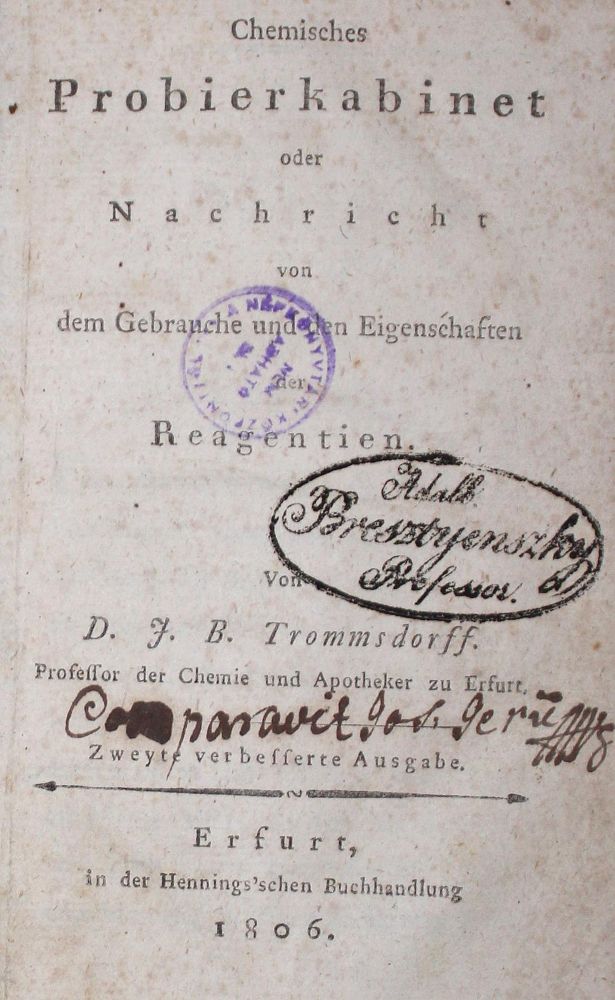 Chemisches
Probierkabinet
oder
Nachricht
von
dem Gebrauche und den Eigenschaften
der
Reagentien.
NÉPKÖNYVTÁRI KÖZPONT
Adalb.
Bresztyenszky
Professor.
Von
D. J. B. Trommsdorff.
Profeſſor der Chemie und Apotheker zu Erfurt.
Comparavit Jos.
Zweyte verbeſſerte Ausgabe.
Erfurt,
in der Hennings'schen Buchhandlung
1806.